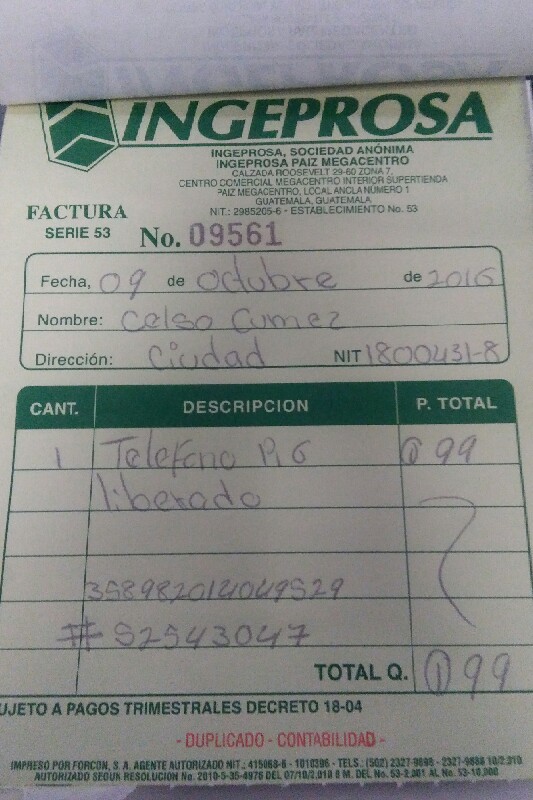 INGEPROSA
INGEPROSA, SOCIEDAD ANÓNIMA
INGEPROSA PAIZ MEGACENTRO
CALZADA ROOSEVELT 29-60 ZONA 7,
CENTRO COMERCIAL MEGACENTRO INTERIOR SUPERTIENDA
PAIZ MEGACENTRO, LOCAL ANCLA NÚMERO 1
GUATEMALA, GUATEMALA
NIT.: 2985205-6 - ESTABLECIMIENTO No. 53
FACTURA
SERIE 53
No. 09561
Fecha, 09 de Octubre de 2016
Nombre: Celso Cumez
Dirección: Ciudad NIT 1800431-8
CANT. DESCRIPCION P. TOTAL
1 Telefono P.6 Q 99
liberado
358982014049529
# 52543047
TOTAL Q. Q 99
UJETO A PAGOS TRIMESTRALES DECRETO 18-04
- DUPLICADO - CONTABILIDAD -
IMPRESO POR FORCON, S. A. AGENTE AUTORIZADO NIT.: 415068-6 - 1010396 - TELS.: (502) 2327-9888 - 2327-9888 10/2,010
AUTORIZADO SEGUN RESOLUCION No. 2010-5-35-4976 DEL 07/10/2,010 8 M. DEL No. 53-2,001 AL No. 53-10,000